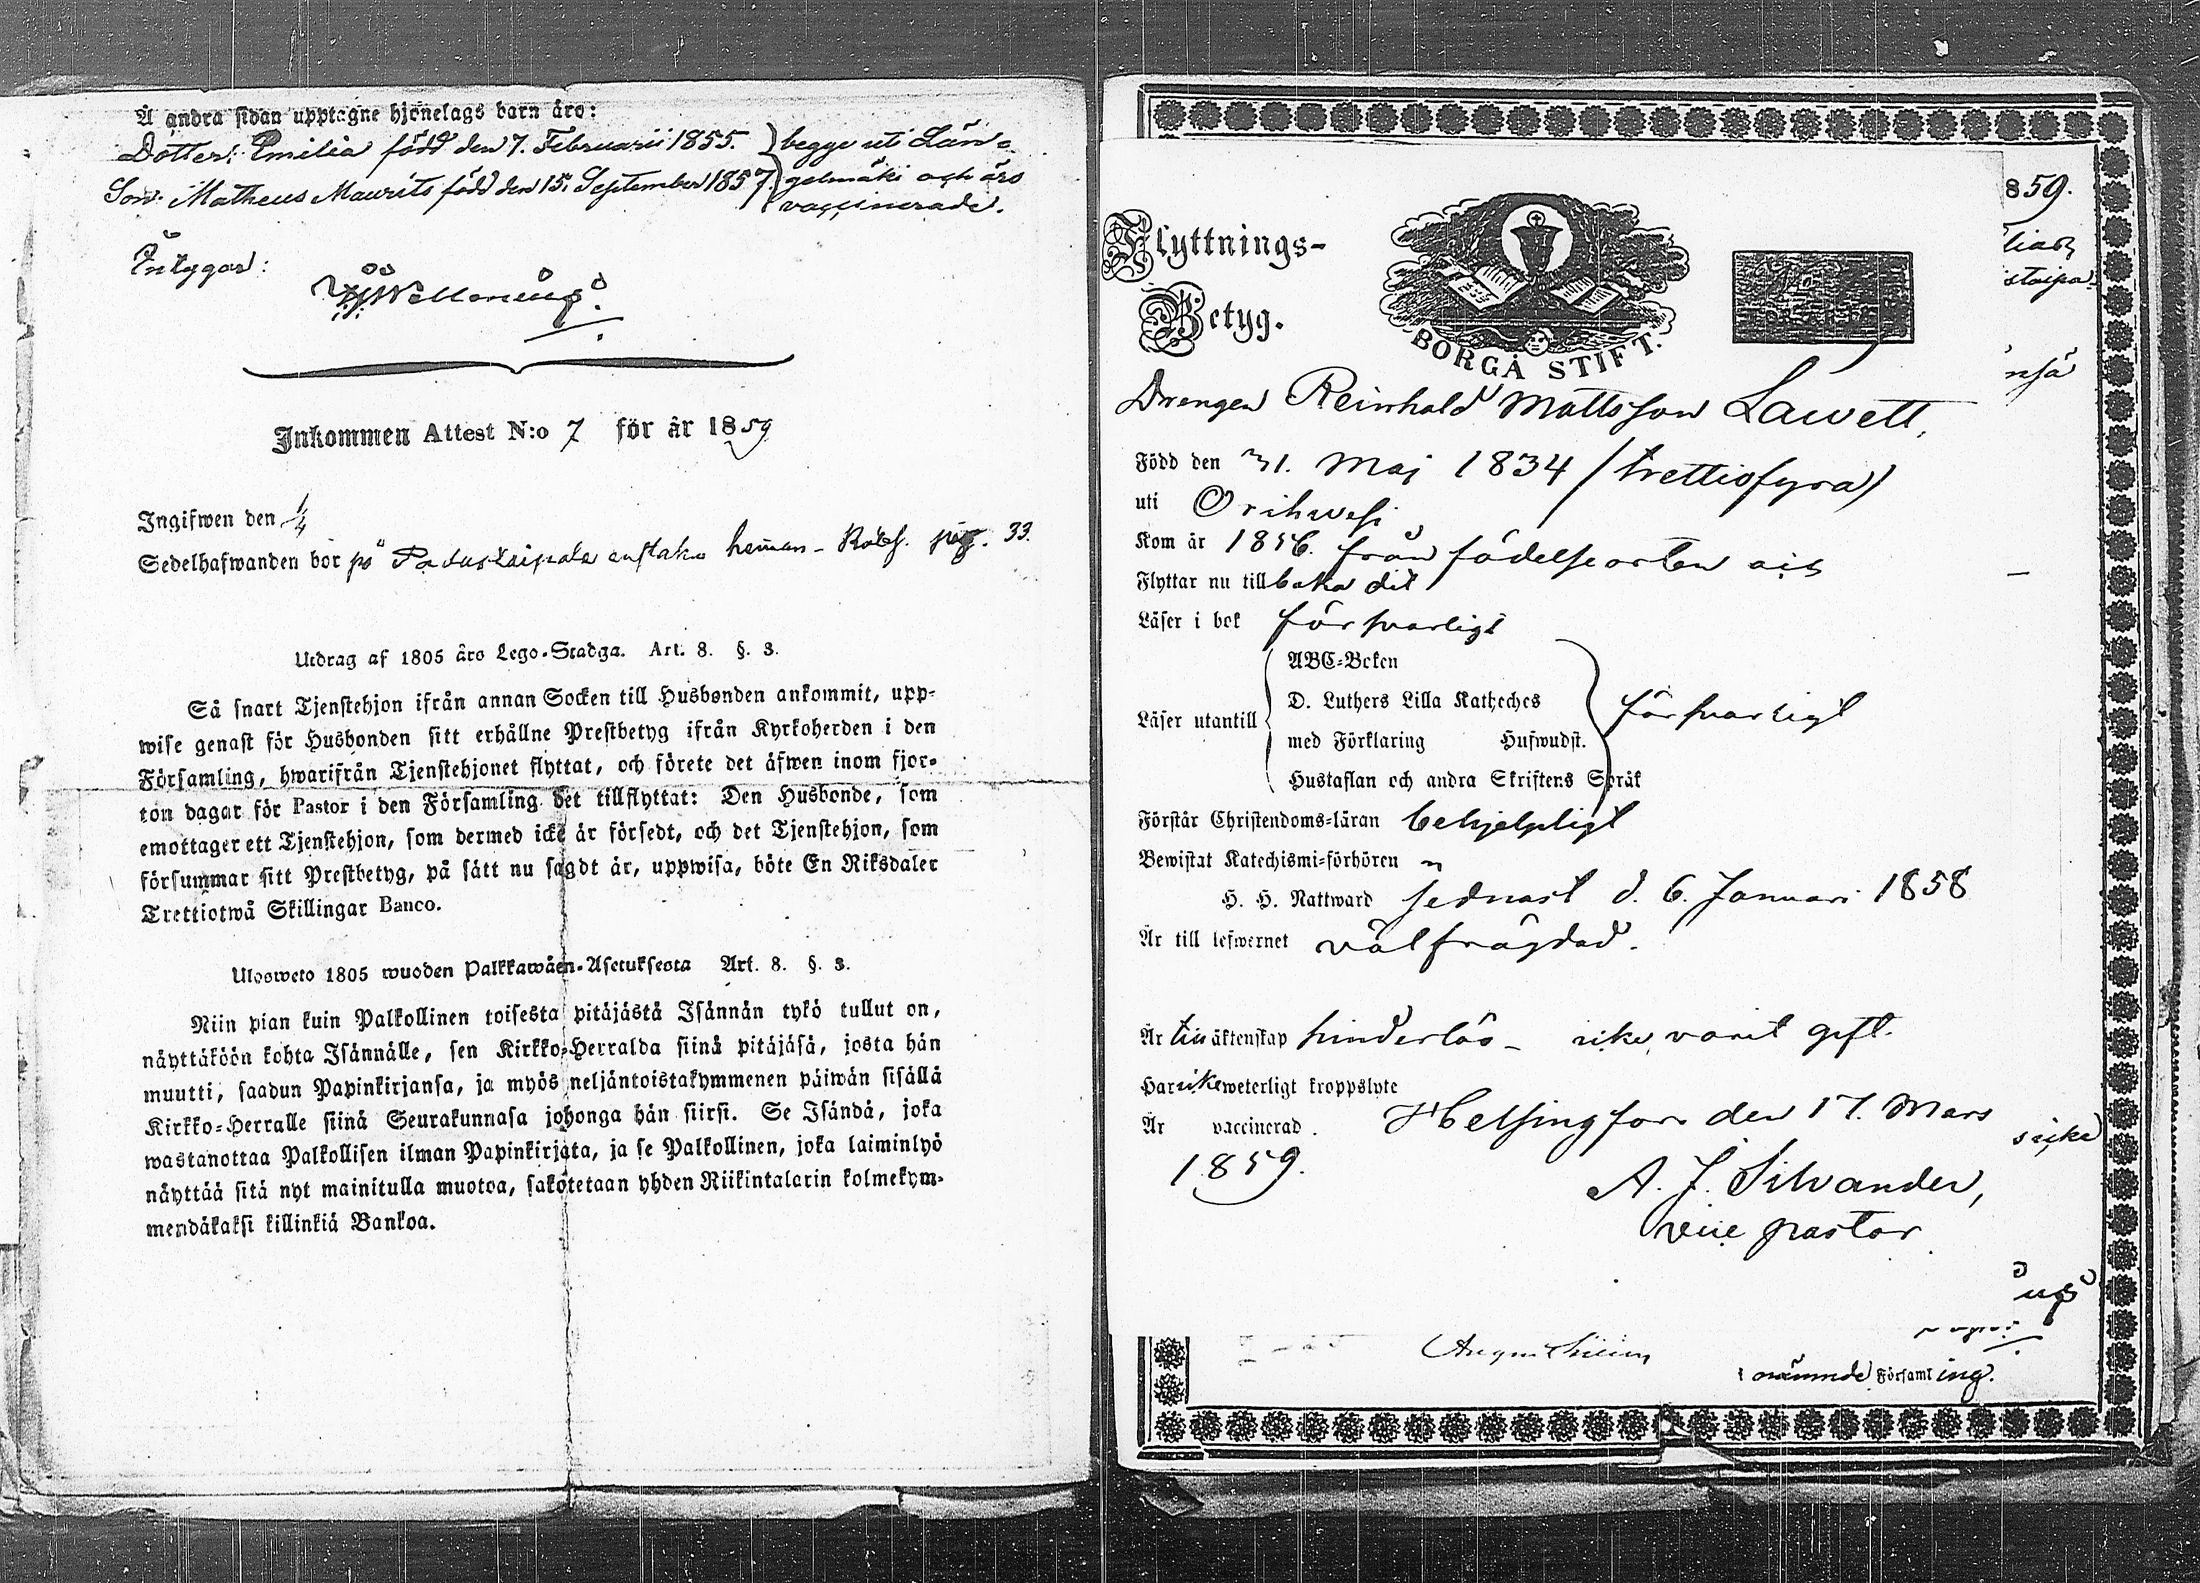 Å andra sidan upptagne hjonelags barn äro:
Dotter: Emilia född den 7. Februarii 1855. begge uti Län-
Son: Matheus Maurits född den 15. September 1857. gelmäki och äro
vaccinerade.
Intygar:
Inkommen Attest N:o 7 för år 1859
Ingifwen den 1/4
Sedelhafwanden bor på Padustaipale enstaka heman - Rotes. pag. 33.
Utdrag af 1805 års Lego-Stadga. Art. 8. §. 3.
Så snart Tjenstehjon ifrån annan Socken till Husbonden ankommit, upp-
wise genast för Husbonden sitt erhållne Prestbetyg ifrån Kyrkoherden i den
Församling, hwarifrån Tjenstehjonet flyttat, och förete det äfwen inom fjor-
ton dagar för Pastor i den Församling det tillflyttat: Den Husbonde, som
emottager ett Tjenstehjon, som dermed icke är försedt, och det Tjenstehjon, som
försummar sitt Prestbetyg, på sätt nu sagdt är, uppwisa, böte En Riksdaler
Trettiotwå Skillingar Banco.
Ulosweto 1805 wuoden Palkkawäen-Asetuksesta Art. 8. §. 3.
Niin pian kuin Palkollinen toisesta pitäjästä Isännän tykö tullut on,
näyttäköön kohta Isännälle, sen Kirkko-Herralda siinä pitäjäsä, josta hän
muutti, saadun Papinkirjansa, ja myös neljäntoistakymmenen päiwän sisällä
Kirkko-Herralle siinä Seurakunnasa johonga hän siirsi. Se Isändä, joka
wastanottaa Palkollisen ilman Papinkirjata, ja se Palkollinen, joka laiminlyö
näyttää sitä nyt mainitulla muotoa, sakotetaan yhden Riikintalarin kolmekym-
mendäkaksi killinkiä Bankoa.
859.
Flyttnings-
Betyg.
BORGÅ STIFT.
Drengen Reinhold Mattsson Lawett,
Född den 31. Maj 1834 / trettiofyra)
uti Orihwesi
Kom år 1856. från födelseorten och
Flyttar nu tillbaka dit
Läser i bok försvarligt
Läser utantill
ABC-Boken
D. Luthers Lilla Katheches
med Förklaring Hufwudst.
Hustaflan och andra Skriftens Språk
försvarligt
Förstår Christendoms-läran behjelpligt
Bewistat Katechismi-förhören
H. H. Nattward sednast d. 6. Januari 1858
Är till lefwernet välfrägdad.
Är till äktenskap hinderlös - icke varit gift.
Har icke weterligt kroppslyte
Är vaccinerad. Helsingfors den 17. Mars
1859.
A. J. Silvander,
vice pastor
nämnde Församling.